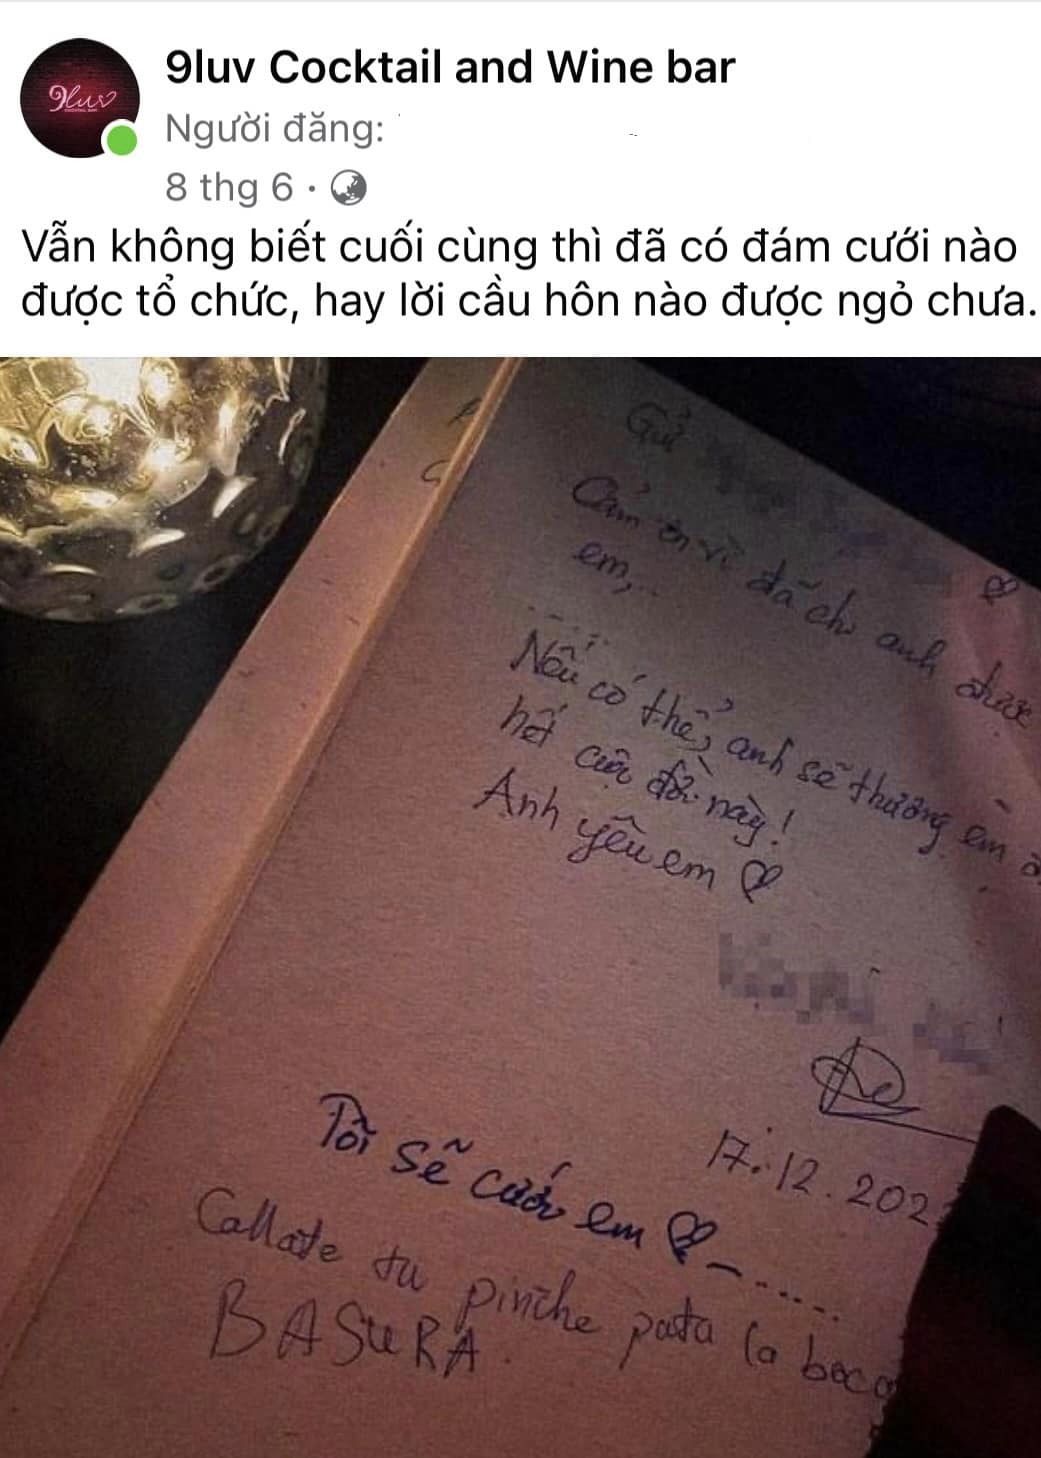 9luv
COCKTAIL BAR
9luv Cocktail and Wine bar
Người đăng:
8 thg 6 ·
Vẫn không biết cuối cùng thì đã có đám cưới nào
được tổ chức, hay lời cầu hôn nào được ngỏ chưa.
Gửi
Cảm ơn vì đã cho anh được
em,..
Nếu có thể, anh sẽ thương em
hết cuộc đời này!
Anh yêu em
17.12.202
Tôi sẽ cưới em
Callate tu pinche pata la boca
BASURA.